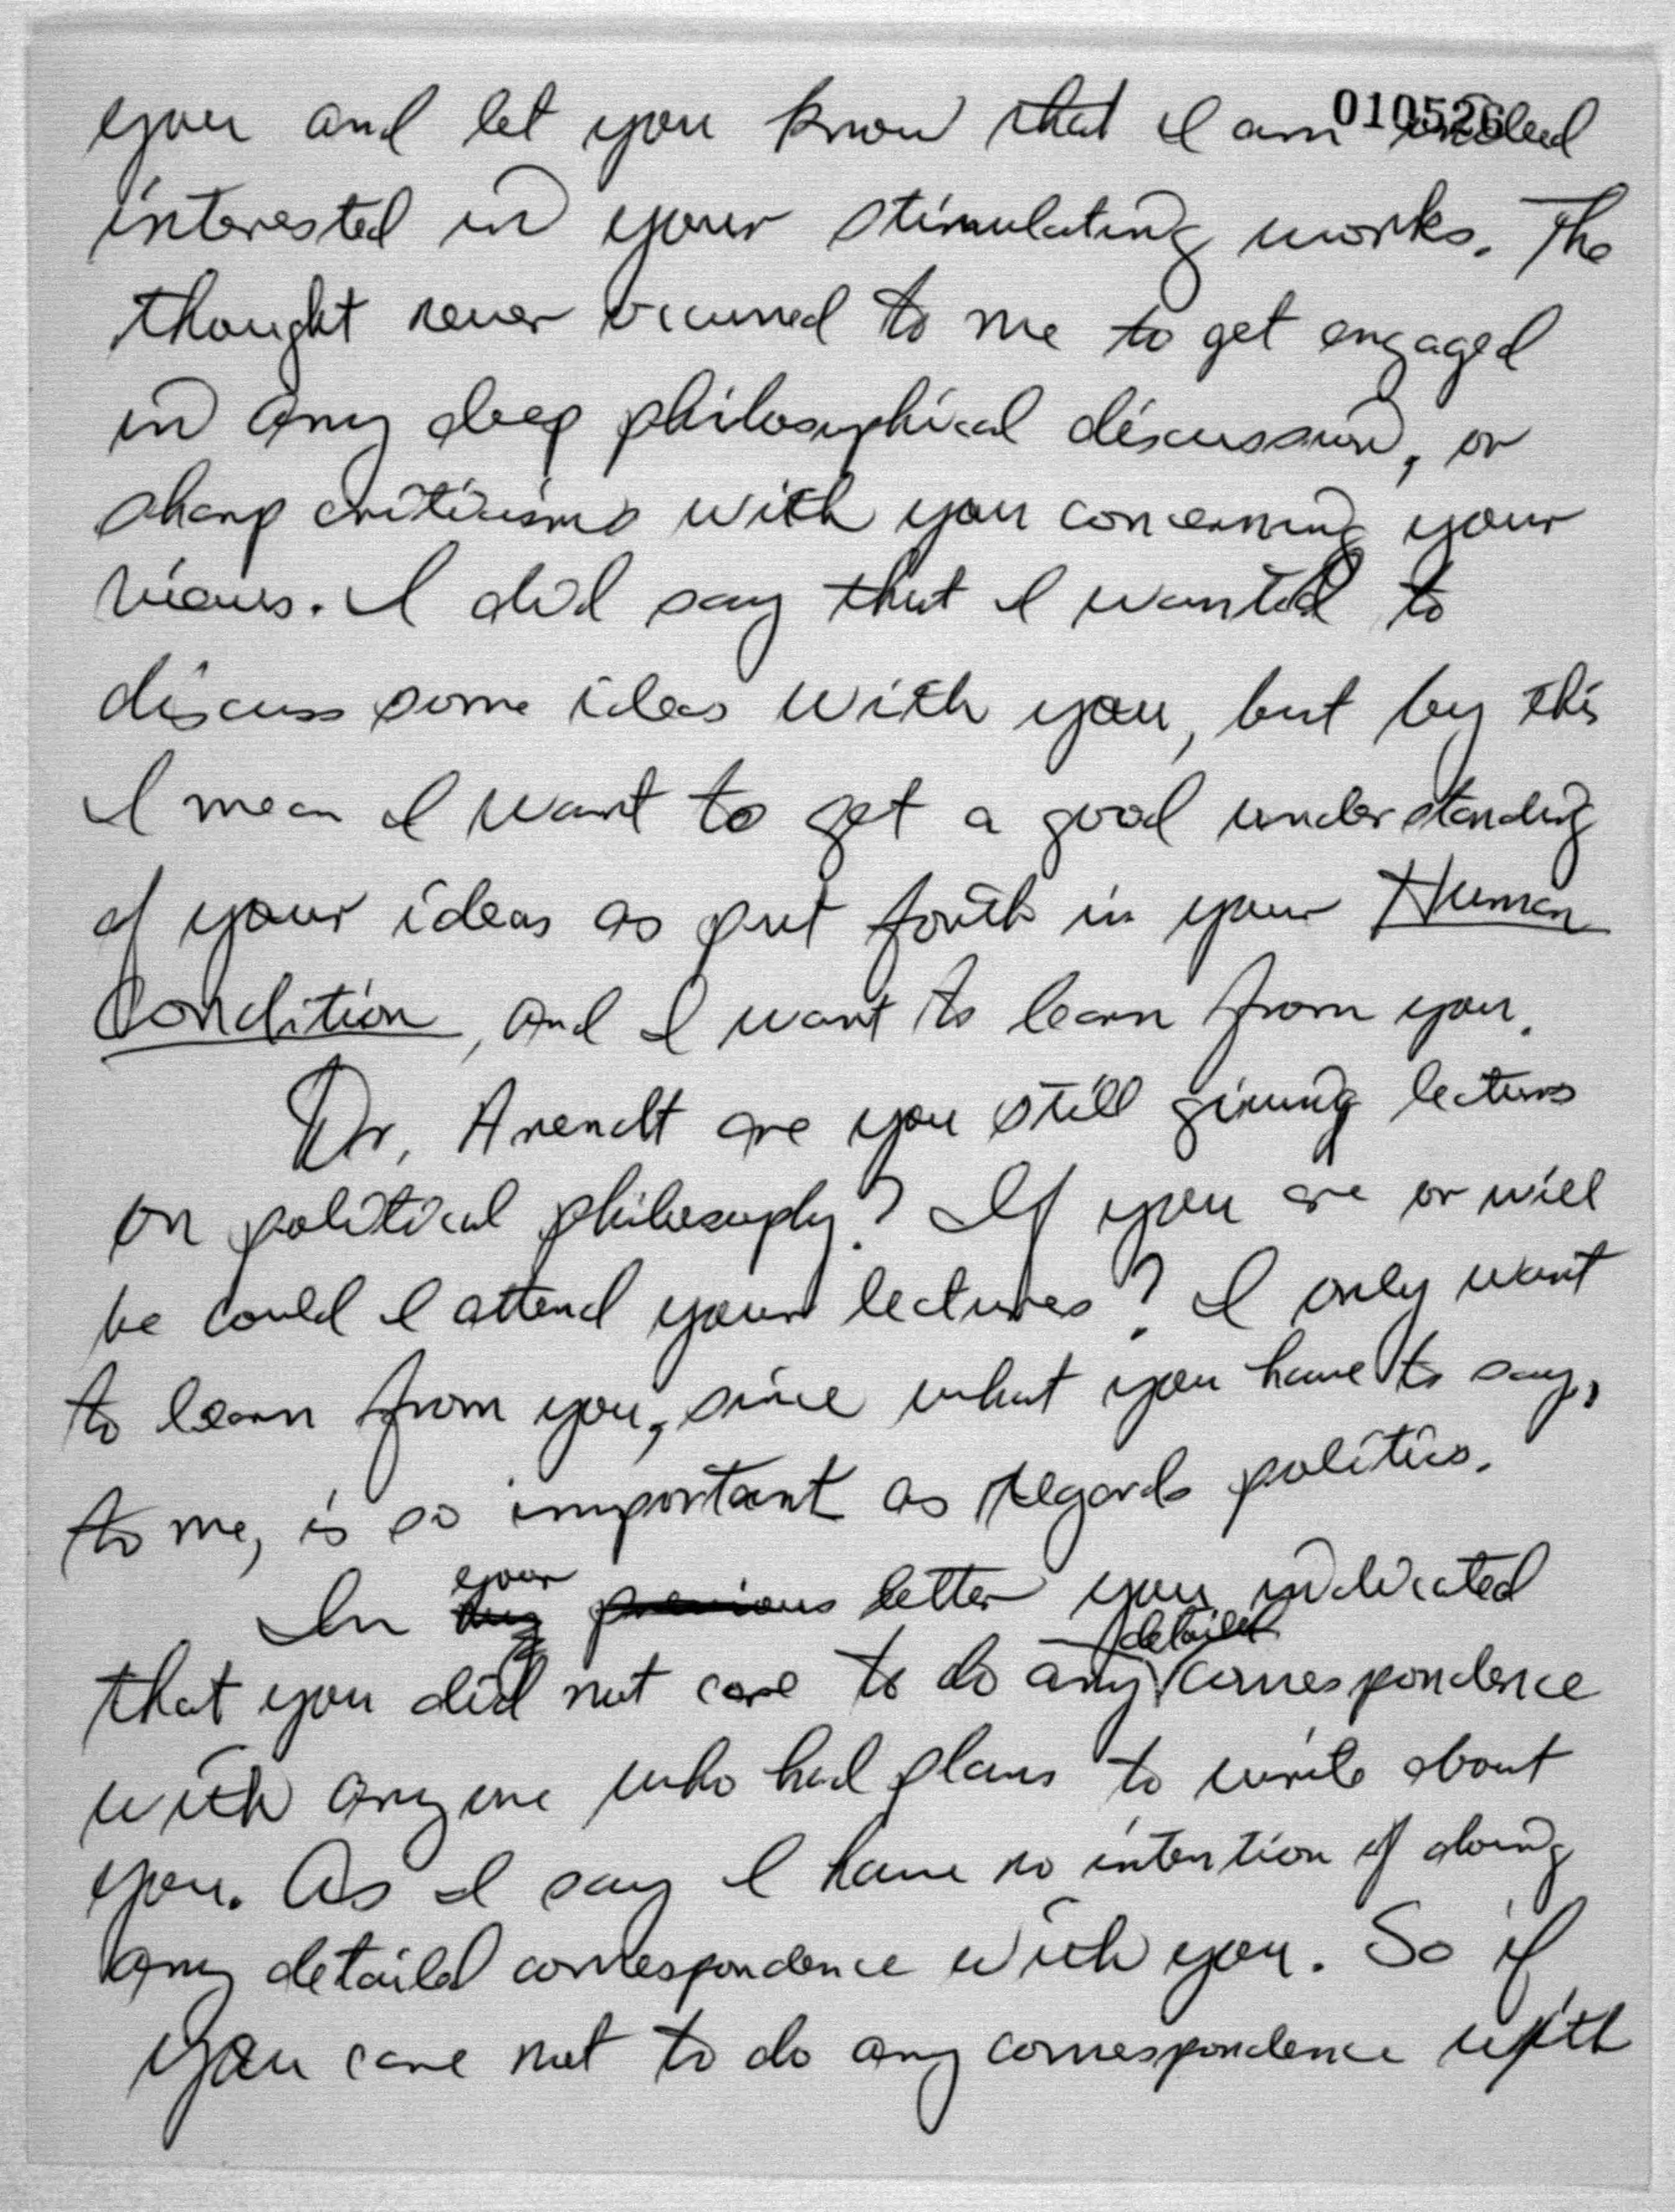 010526
you and let you know that I am indeed
interested in your stimulating works. The
thought never occurred to me to get engaged
in any deep philosophical discussion, or
sharp criticisms with you concerning your
views. I did say that I wanted to
discuss some ideas with you, but by this
I mean I want to get a good understanding
of your ideas as put forth in your Human
Condition, and I want to learn from you.
Dr. Arendt are you still giving lectures
on political philosophy? If you are or will
be could I attend your lectures? I only want
to learn from you, since what you have to say,
to me, is so important as regards politics.
In your previous letter you indicated
that you did not care to do any detailed correspondence
with anyone who had plans to write about
you. As I say I have no intention of doing
any detaild correspondence with you. So if
you care not to do any correspondence with